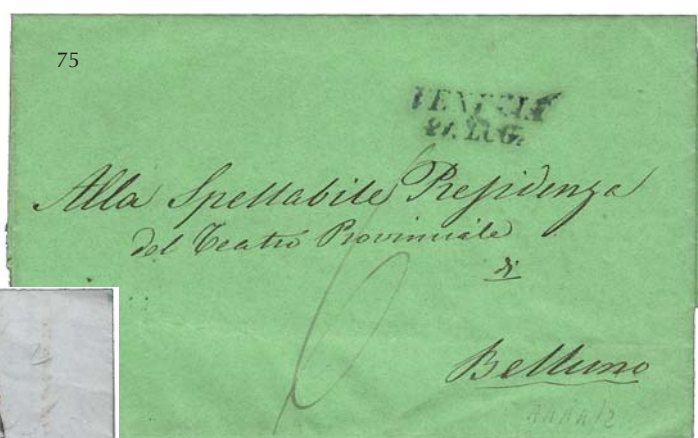 75
VENEZIA
21. LUG.
Alla Spettabile Presidenza
del Teatro Provinciale
di
Belluno
6